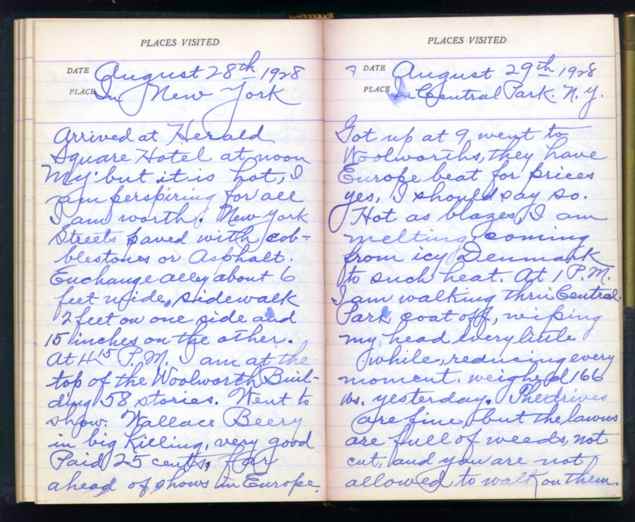 PLACES VISITED
DATE August 28th 1928
PLACE In New York
Arrived at Herald
Square Hotel at noon
My but it is hot, I
am perspiring for all
I am worth. New York
Streets paved with cob-
blestones or Asphalt.
Exchange alley about 6
feet wide, sidewalk
2 feet on one side and
15 inches on the other.
At 4 15 P.M. I am at the
top of the Woolworth Buil-
ding 58 stories. Went to
show. Wallace Beery
in big Killing, very good
Paid 25 cents, far
ahead of shows in Europe.
PLACES VISITED
DATE August 29th 1928
PLACE In Central Park. N.Y.
Got up at 9 went to
Woolworths, they have
Europe beat for prices
yes, I should say so.
Hot as blazes, I am
melting coming
from icy Denmark
to such heat. At 1 P.M.
I am walking thru Central
Park, coat off, wiping
my head every little
while, reducing every
moment. weighed 166
lbs. yesterday. The drives
are fine, but the lawns
are full of weeds, not
cut, and you are not
allowed to walk on them.